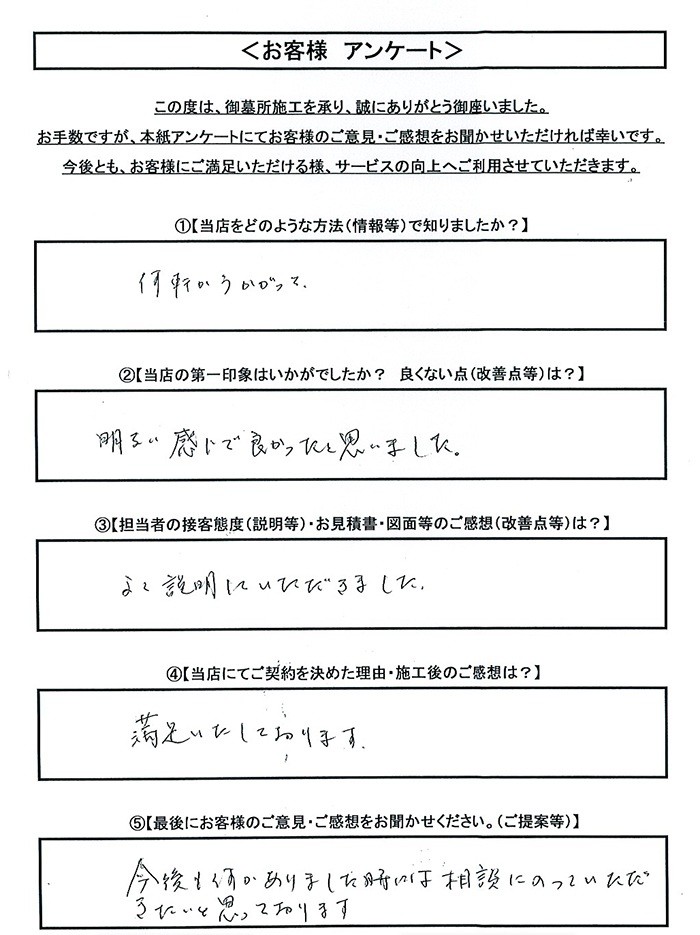 ＜お客様　アンケート＞
この度は、御墓所施工を承り、誠にありがとう御座いました。
お手数ですが、本紙アンケートにてお客様のご意見・ご感想をお聞かせいただければ幸いです。
今後とも、お客様にご満足いただける様、サービスの向上へご利用させていただきます。
①【当店をどのような方法（情報等）で知りましたか？】
何軒かうかがって、
②【当店の第一印象はいかがでしたか？　良くない点（改善点等）は？】
明るい感じで良かったと思いました。
③【担当者の接客態度（説明等）・お見積書・図面等のご感想（改善点等）は？】
よく説明していただきました。
④【当店にてご契約を決めた理由・施工後のご感想は？】
満足いたしております。
⑤【最後にお客様のご意見・ご感想をお聞かせください。（ご提案等）】
今後も何かありました時には相談にのっていただ
きたいと思っております